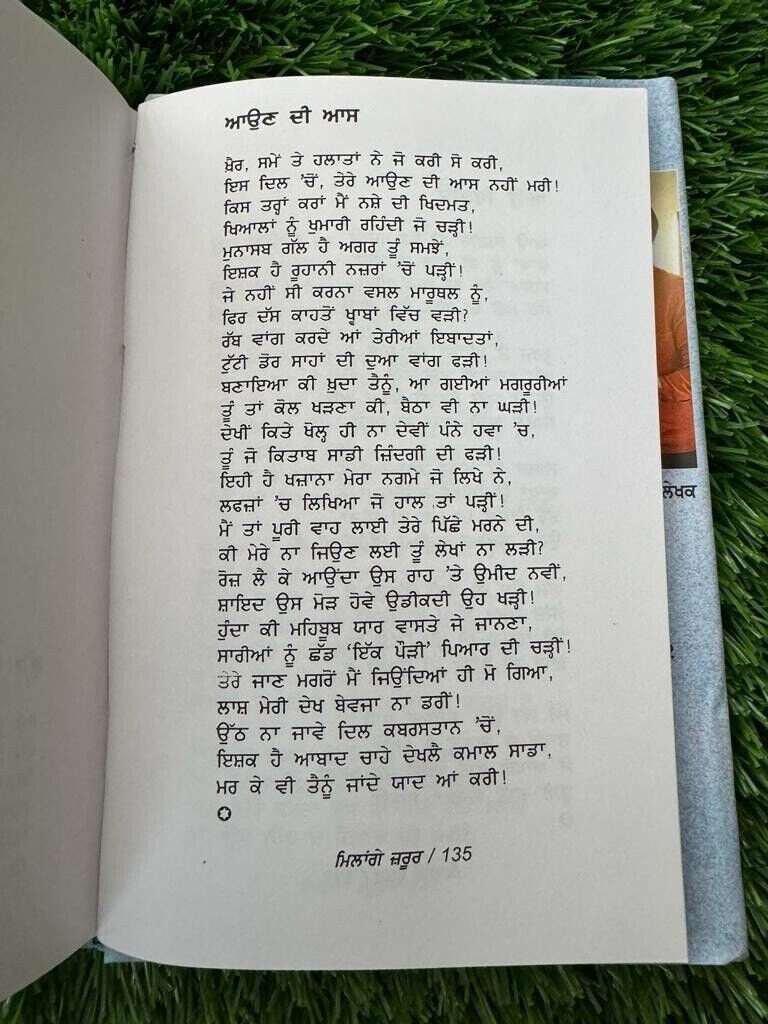 ਆਉਣ ਦੀ ਆਸ
ਖ਼ੈਰ, ਸਮੇਂ ਤੇ ਹਲਾਤਾਂ ਨੇ ਜੋ ਕਰੀ ਸੋ ਕਰੀ,
ਇਸ ਦਿਲ 'ਚੋਂ, ਤੇਰੇ ਆਉਣ ਦੀ ਆਸ ਨਹੀਂ ਮਰੀ!
ਕਿਸ ਤਰ੍ਹਾਂ ਕਰਾਂ ਮੈਂ ਨਸ਼ੇ ਦੀ ਖਿਦਮਤ,
ਖਿਆਲਾਂ ਨੂੰ ਖੁਮਾਰੀ ਰਹਿੰਦੀ ਜੋ ਚੜ੍ਹੀ!
ਮੁਨਾਸਬ ਗੱਲ ਹੈ ਅਗਰ ਤੂੰ ਸਮਝੇਂ,
ਇਸ਼ਕ ਹੈ ਰੂਹਾਨੀ ਨਜ਼ਰਾਂ 'ਚੋਂ ਪੜ੍ਹੀਂ!
ਜੇ ਨਹੀਂ ਸੀ ਕਰਨਾ ਵਸਲ ਮਾਰੂਥਲ ਨੂੰ,
ਫਿਰ ਦੱਸ ਕਾਹਤੋਂ ਖ੍ਵਾਬਾਂ ਵਿੱਚ ਵੜੀ?
ਰੱਬ ਵਾਂਗ ਕਰਦੇ ਆਂ ਤੇਰੀਆਂ ਇਬਾਦਤਾਂ,
ਟੁੱਟੀ ਡੋਰ ਸਾਹਾਂ ਦੀ ਦੁਆ ਵਾਂਗ ਫੜੀ!
ਬਣਾਇਆ ਕੀ ਖ਼ੁਦਾ ਤੈਨੂੰ, ਆ ਗਈਆਂ ਮਗਰੂਰੀਆਂ
ਤੂੰ ਤਾਂ ਕੋਲ ਖੜਣਾ ਕੀ, ਬੈਠਾ ਵੀ ਨਾ ਘੜੀ!
ਦੇਖੀਂ ਕਿਤੇ ਖੋਲ੍ਹ ਹੀ ਨਾ ਦੇਵੀਂ ਪੰਨੇ ਹਵਾ 'ਚ,
ਤੂੰ ਜੋ ਕਿਤਾਬ ਸਾਡੀ ਜ਼ਿੰਦਗੀ ਦੀ ਫੜੀ!
ਇਹੀ ਹੈ ਖਜ਼ਾਨਾ ਮੇਰਾ ਨਗਮੇ ਜੋ ਲਿਖੇ ਨੇ,
ਲਫਜ਼ਾਂ 'ਚ ਲਿਖਿਆ ਜੋ ਹਾਲ ਤਾਂ ਪੜ੍ਹੀਂ!
ਮੈਂ ਤਾਂ ਪੂਰੀ ਵਾਹ ਲਾਈ ਤੇਰੇ ਪਿੱਛੇ ਮਰਨੇ ਦੀ,
ਕੀ ਮੇਰੇ ਨਾ ਜਿਉਣ ਲਈ ਤੂੰ ਲੇਖਾਂ ਨਾ ਲੜੀ?
ਰੋਜ਼ ਲੈ ਕੇ ਆਉਂਦਾ ਉਸ ਰਾਹ 'ਤੇ ਉਮੀਦ ਨਵੀਂ,
ਸ਼ਾਇਦ ਉਸ ਮੋੜ ਹੋਵੇ ਉਡੀਕਦੀ ਉਹ ਖੜ੍ਹੀ!
ਹੁੰਦਾ ਕੀ ਮਹਿਬੂਬ ਯਾਰ ਵਾਸਤੇ ਜੇ ਜਾਨਣਾ,
ਸਾਰੀਆਂ ਨੂੰ ਛੱਡ 'ਇੱਕ ਪੌੜੀ' ਪਿਆਰ ਦੀ ਚੜ੍ਹੀਂ!
ਤੇਰੇ ਜਾਣ ਮਗਰੋਂ ਮੈਂ ਜਿਉਂਦਿਆਂ ਹੀ ਮੋ ਗਿਆ,
ਲਾਸ਼ ਮੇਰੀ ਦੇਖ ਬੇਵਜਾ ਨਾ ਡਰੀਂ!
ਉੱਠ ਨਾ ਜਾਵੇ ਦਿਲ ਕਬਗਸਤਾਨ 'ਚੋਂ,
ਇਸ਼ਕ ਹੈ ਆਬਾਦ ਚਾਹੇ ਦੇਖਲੈ ਕਮਾਲ ਸਾਡਾ,
ਮਰ ਕੇ ਵੀ ਤੈਨੂੰ ਜਾਂਦੇ ਯਾਦ ਆਂ ਕਰੀ!
ਮਿਲਾਂਗੇ ਜ਼ਰੂਰ / 135
ਲੇਖਕ